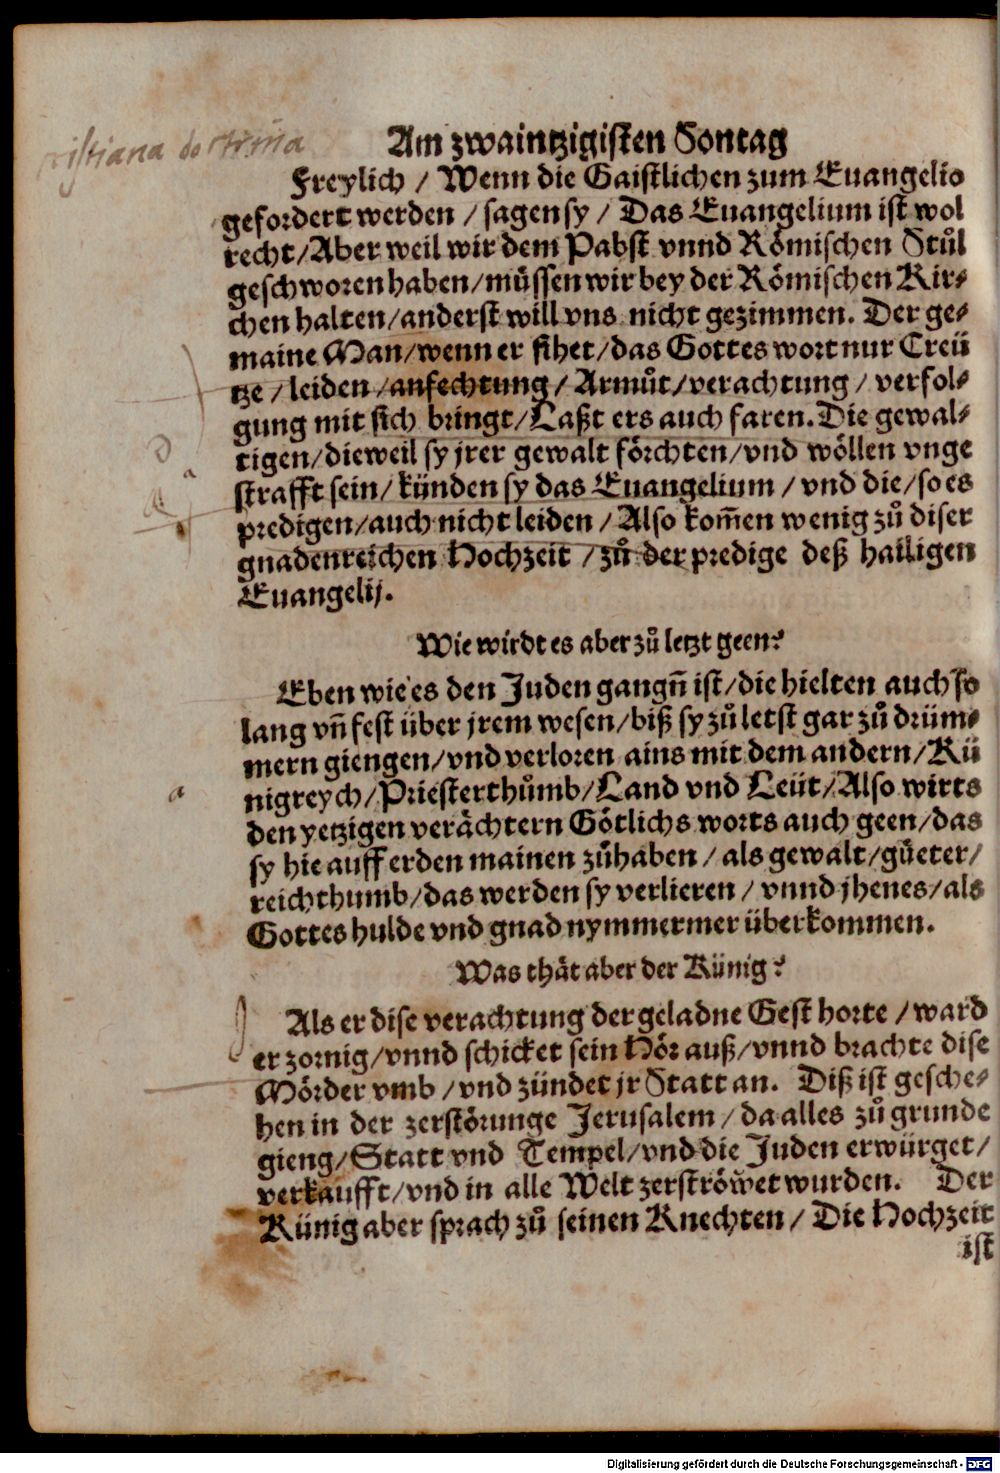 Am zwaintzigisten Sontag
Freylich / Wenn die Gaistlichen zum Euangelio
gefordert werden / sagen sy / Das Euangelium ist wol
recht/Aber weil wir dem Pabst vnnd Römischen Stůl
geschworen haben/müssen wir bey der Römischen Kir⸗
chen halten/anderst will vns nicht gezimmen. Der ge⸗
maine Man/wenn er sihet/das Gottes wort nur Creü
tze / leiden /anfechtung/ Armůt/verachtung / verfol⸗
gung mit sich bringt/Laßt ers auch faren. Die gewal⸗
tigen/dieweil sy jrer gewalt förchten/vnd wöllen vnge
strafft sein/ künden sy das Euangelium / vnd die/so es
predigen/auch nicht leiden / Also kom̃en wenig zů diser
gnadenreichen Hochzeit / zů der predige deß hailigen
Euangelij.
Wie wirdt es aber zů letzt geen?
Eben wie es den Juden gangñ ist/die hielten auch so
lang vñ fest über jrem wesen/biß sy zů letst gar zů drüm⸗
mern giengen/vnd verloren ains mit dem andern/Kü
nigreych/Priesterthůmb/Land vnd Leüt/Also wirts
den yetzigen verächtern Götlichs worts auch geen/das
sy hie auff erden mainen zůhaben / als gewalt/güeter/
reichthumb/das werden sy verlieren / vnnd jhenes/als
Gottes hulde vnd gnad nymmermer überkommen.
Was thät aber der Künig?
Als er dise verachtung der geladne Gest horte / ward
er zornig/vnnd schicket sein Hör auß/vnnd brachte dise
Mörder vmb / vnd zündet jr Statt an. Diß ist gesche⸗
hen in der zerstörunge Jerusalem / da alles zů grunde
gieng/Statt vnd Tempel/vnd die Juden erwürget/
verkaufft/vnd in alle Welt zerströwet wurden. Der
Künig aber sprach zů seinen Knechten / Die Hochzeit
ist
Digitalisierung gefördert durch die Deutsche Forschungsgemeinschaft - DFG